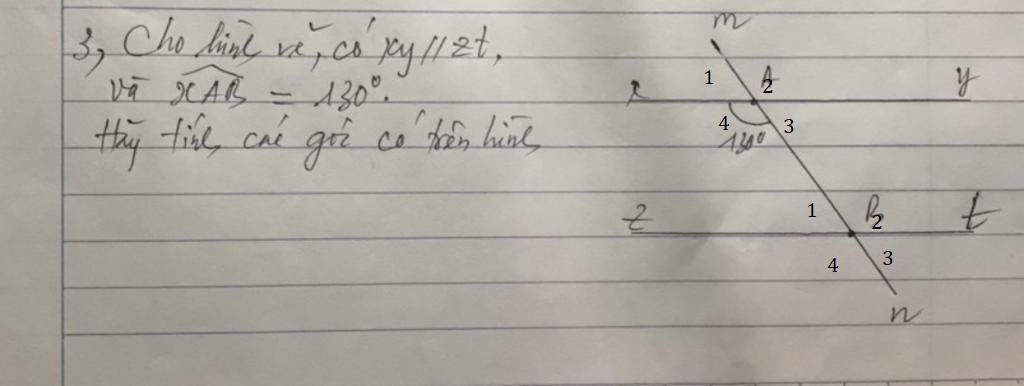 3, Cho hình vẽ, có xy // zt,
và xAB = 130°.
Hãy tính các góc có trên hình
m
1 A 2
x y
4 3
130°
1 B 2
z t
4 3
n